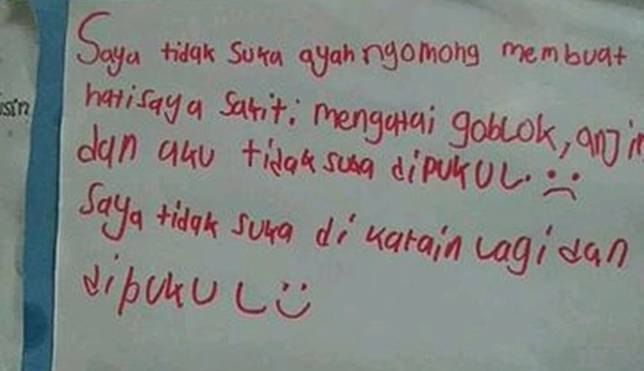 Saya tidak suka ayah ngomong membuat
hati saya sakit: mengatai goblok, anjin
dan aku tidak suka dipukul. :(
Saya tidak suka di katain lagi dan
dipukul :)
sin